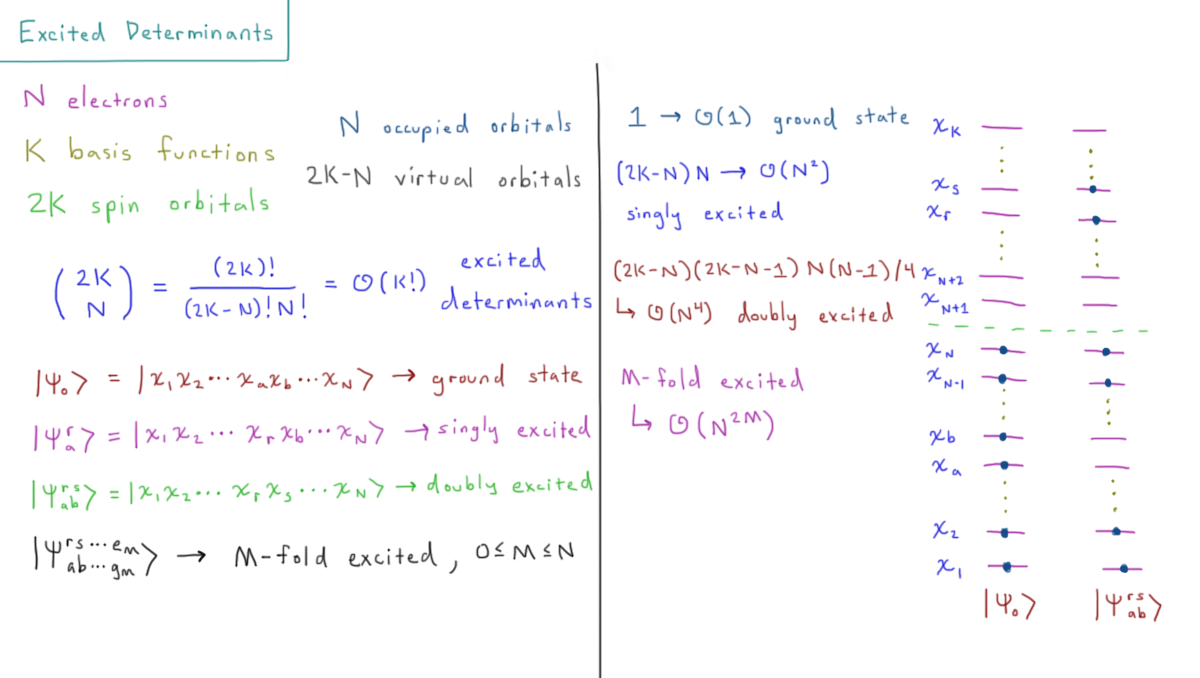 Excited Determinants
N electrons
K basis functions
2K spin orbitals
N occupied orbitals
2K-N virtual orbitals
(2K N) = (2K)! / (2K-N)! N! = O(K!) excited determinants
|Ψ₀⟩ = |χ₁χ₂⋯χₐχ_b⋯χ_N⟩ → ground state
|Ψₐʳ⟩ = |χ₁χ₂⋯χᵣχ_b⋯χ_N⟩ → singly excited
|Ψ_ab^rs⟩ = |χ₁χ₂⋯χᵣχₛ⋯χ_N⟩ → doubly excited
|Ψ_ab⋯gm^rs⋯em⟩ → M-fold excited, 0≤M≤N
1 → O(1) ground state
(2K-N)N → O(N²)
singly excited
(2K-N)(2K-N-1)N(N-1)/4
↳ O(N⁴) doubly excited
M-fold excited
↳ O(N^2M)
χ_K
χₛ
χᵣ
χ_N+2
χ_N+1
χ_N
χ_N-1
χ_b
χₐ
χ₂
χ₁
|Ψ₀⟩ |Ψ_ab^rs⟩